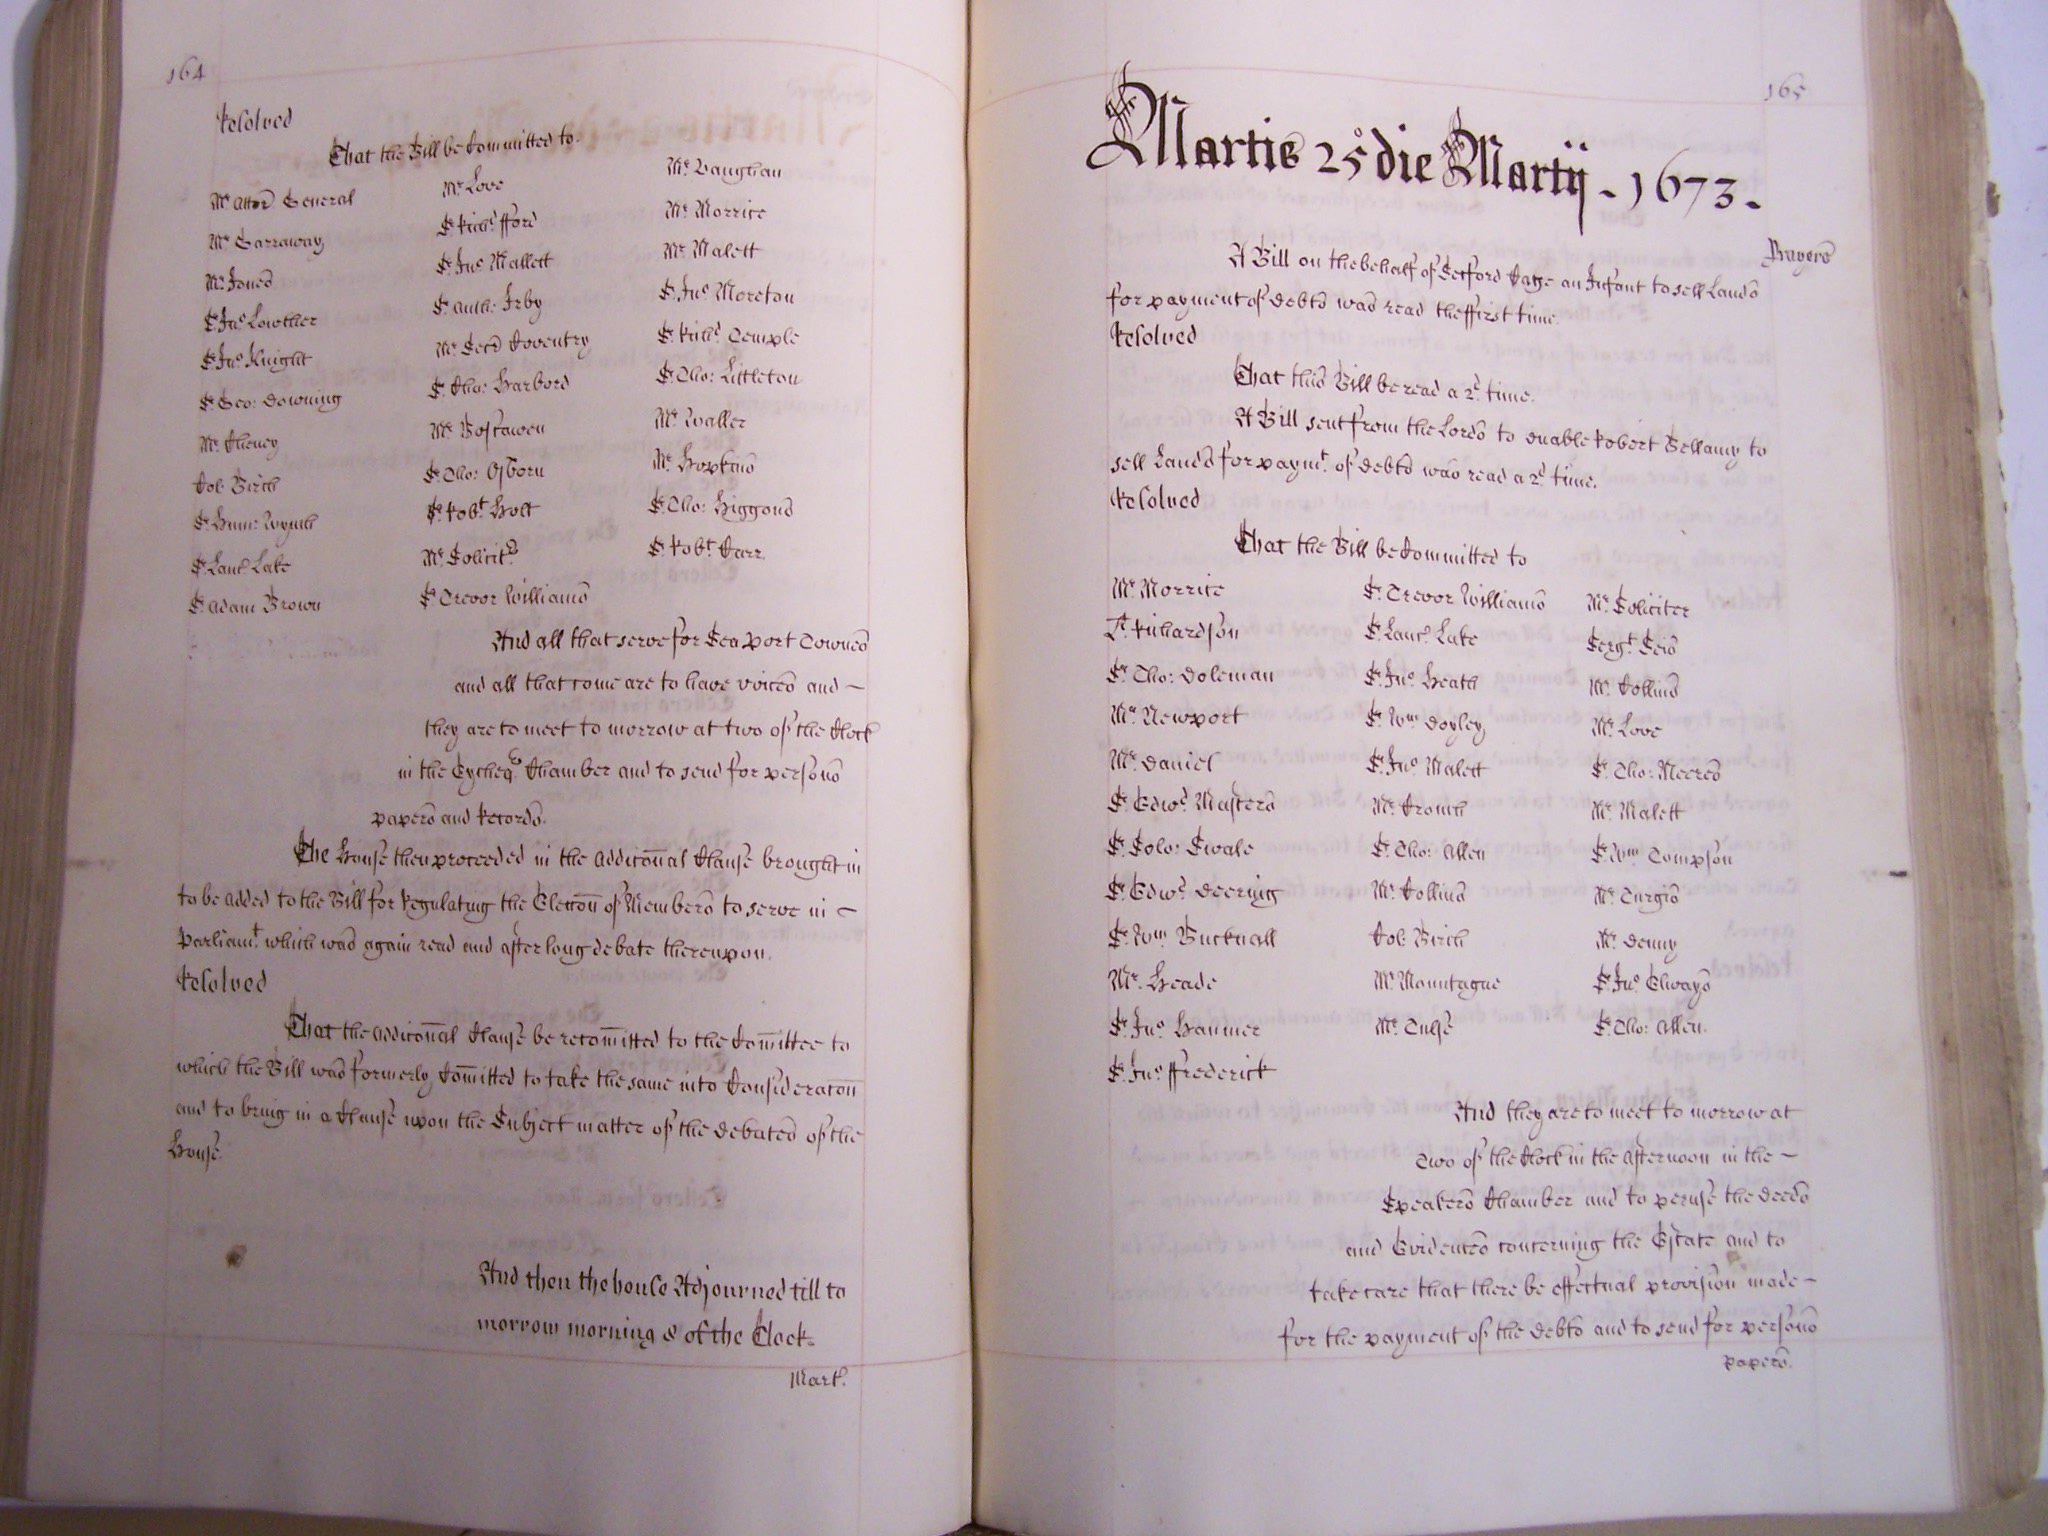 164
Resolved
That the Bill be Committed to.
Mr Attor General
Mr Garraway
Mr Jones
Sr Jno Lowther
Sr Jno Knight
Sr Geo: Downing
Mr Cheney
Col: Birch
Sr Hum: Wynch
Sr Lanc: Lake
Sr Adam Brown
Mr Love
Sr Richd fford
Sr Jno Mallett
Sr Anth: Irby
Mr Secr Coventry
Sr Cha: Harbord
Mr Boscawen
Sr Tho: Osborn
Sr Robt Holt
Mr Solicitr
Sr Trevor Williams
Mr Vaughan
Mr Morrice
Mr Malett
Sr Jno Moreton
Sr Richd Temple
Sr Tho: Littleton
Mr Waller
Mr Hopkins
Sr Tho: Higgons
Sr Robt Carr.
And all that serve for Sea port Townes
and all that come are to have voices and –
they are to meet to morrow at two of the Clock
in the Excheqr Chamber and to send for persons
papers and Records.
The House then proceeded in the additonal Clause brought in
to be added to the Bill for Regulating the Electon of Members to serve in –
Parliamt which was again read and after long debate thereupon.
Resolved
That the additonal Clause be recomitted to the Comittee to
which the Bill was formerly Comitted to take the same into Consideraton
and to bring in a Clause upon the Subject matter of the debates of the
House.
And then the house Adjourned till to
morrow morning 8 of the Clock.
Mart.
165
Martis 25o die Martij - 1673 -
Prayers
A Bill on the behalf of Secford Cage an Infant to sell Lands
for payment of debts was read the ffirst time.
Resolved
That this Bill be read a 2d time.
A Bill sent from the Lords to enable Robert Bellamy to
sell Lands for paymt of debts was read a 2d time.
Resolved
That the Bill be Committed to
Mr Morrice
Lt Richardson
Sr Tho: Doleman
Mr Newport
Mr Daniel
Sr Edwd Masters
Sr Solo: Swale
Sr Edwd Deering
Sr Wm Bucknall
Mr Heade
Sr Jno Hanmer
Sr Jno ffrederick
Sr Trevor Williams
Sr Lanc: Lake
Sr Jno Heath
Sr Wm Doyley
Sr Jno Malett
Mr Crouch
Sr Tho: Allen
Mr Collins
Col: Birch
Mr Mountague
Mr Culse
Mr Soliciter
Sergt Seis
Mr Collins
Mr Love
Sr Tho: Meeres
Mr Malett
Sr Wm Tompson
Mr Turgis
Mr Denny
Sr Jno Elways
Sr Tho: Allen.
And they are to meet to morrow at
two of the Clock in the afternoon in the –
Speakers Chamber and to peruse the deeds
and Evidences concerning the Estate and to
take care that there be effectual provision made –
for the payment of the debts and to send for persons
papers.